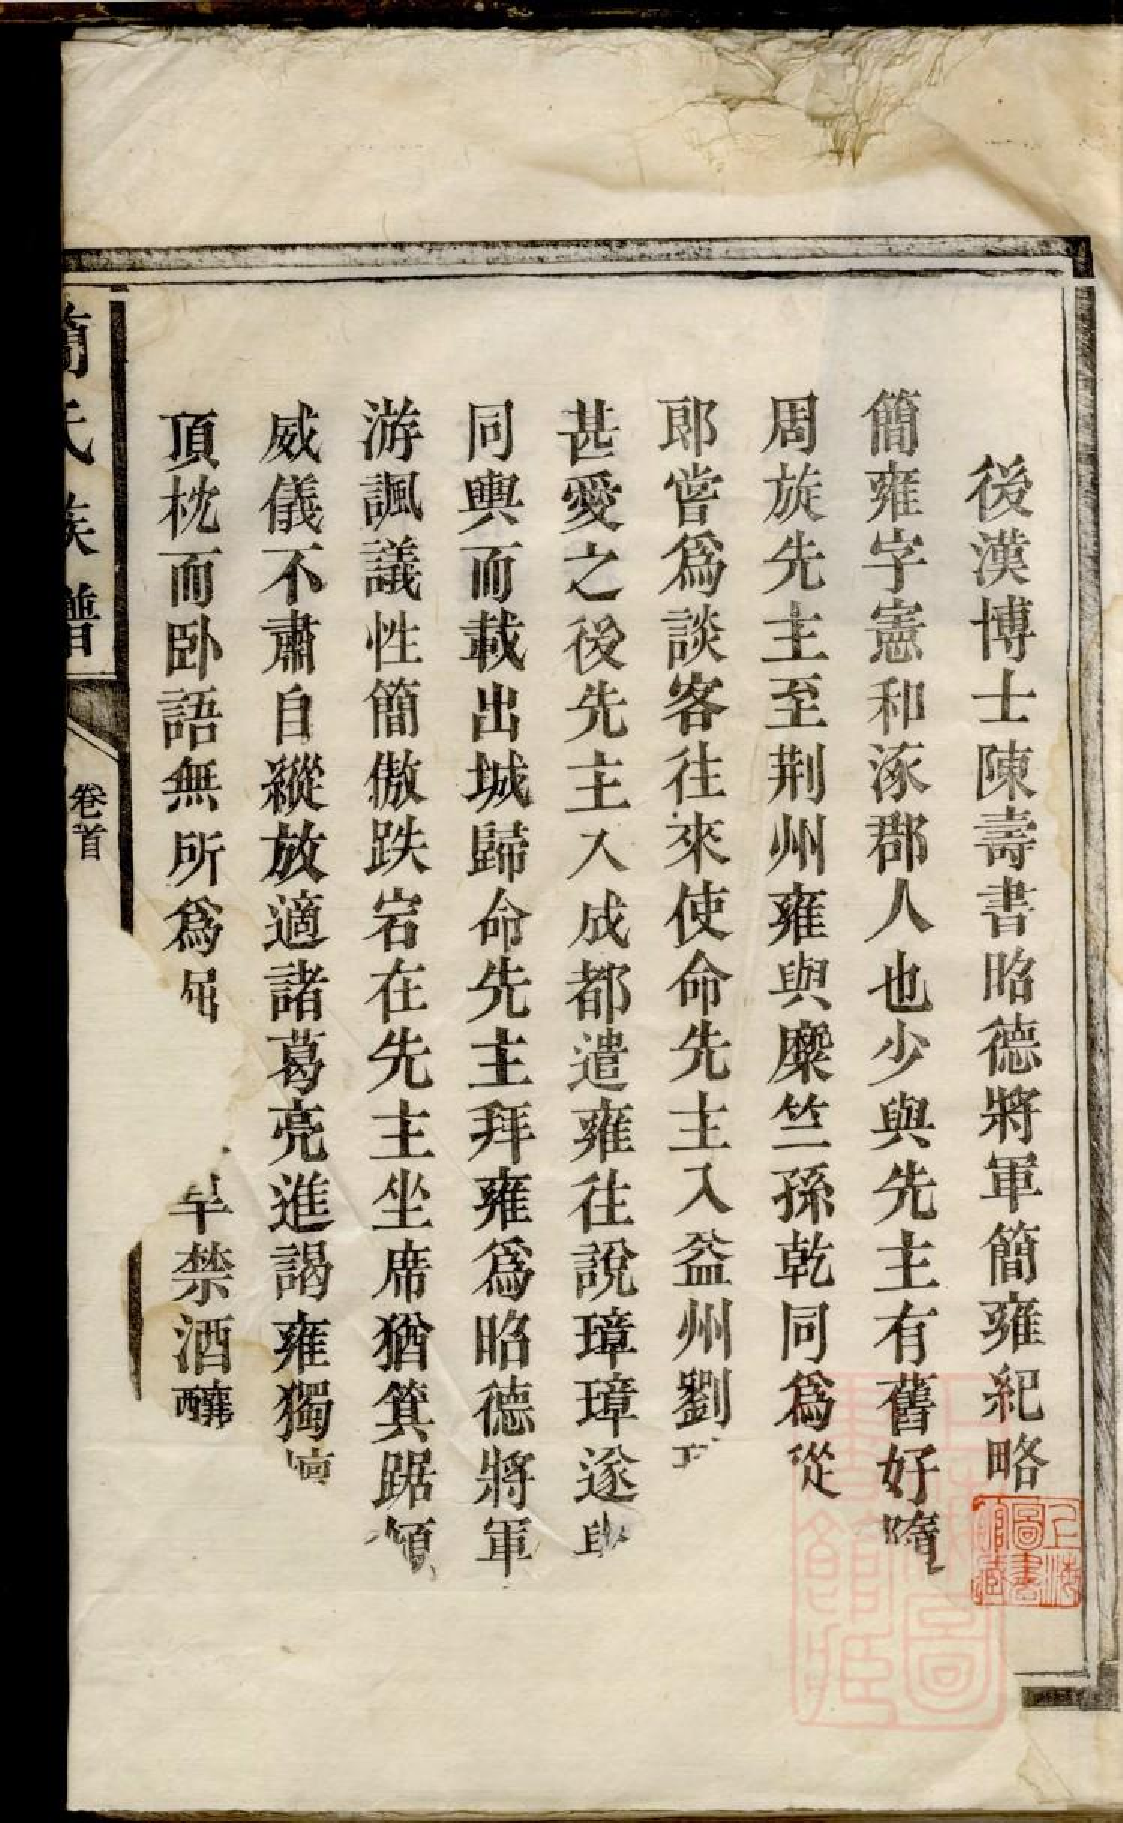 後漢博士陳壽書昭德將軍簡雍紀略
簡雍字憲和涿郡人也少與先主有舊好隨
周旋先主至荆州雍與麋竺孫乾同爲從
郎嘗爲談客往來使命先主入益州劉
甚愛之後先主入成都遣雍往說璋璋遂與
同輿而載出城歸命先主拜雍爲昭德將軍
游諷議性簡傲跌宕在先主坐席猶箕踞傾
威儀不肅自縱放適諸葛亮進謁雍獨擅
頂枕而卧語無所爲屈
旱禁酒釀
簡氏族譜
卷首
上海圖書館藏